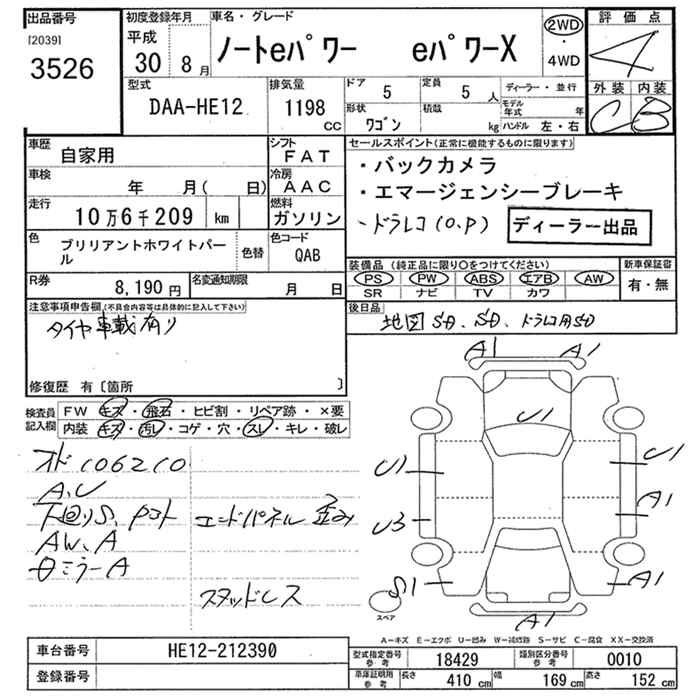 出品番号
[2039]
3526
初度登録年月
平成
30 8月
車名・グレード
ノートeパワー eパワーX
2WD
・
4WD
評価点
4
外装 内装
C B
型式
DAA-HE12
排気量
1198
CC
ドア 5
形状
ワゴン
定員 5 人
積載 kg
ディーラー・並行
モデル年式 年
ハンドル 左・右
車歴 自家用
車検 年 月( 日)
走行 10万6千209 km
シフト
FAT
冷房
AAC
燃料
ガソリン
色 ブリリアントホワイトパール
色替
色コード
QAB
R券 8,190円
名変通知期限 月 日
セールスポイント(正常に機能するものに限ります)
・バックカメラ
・エマージェンシーブレーキ
・ドラレコ(O.P)
ディーラー出品
装備品(純正品に限り○をつけてください)
PS PW ABS エアB AW
SR ナビ TV カワ
新車保証書
有・無
後日品
地図SD、SD、ドラレコ用SD
注意事項申告欄(不具合内容等は具体的に記入して下さい)
タイヤ車載有り
修復歴 有〔箇所 〕
検査員記入欄
FW キズ・飛石・ヒビ割・リペア跡・×要
内装 キズ・汚レ・コゲ・穴・スレ・キレ・破レ
オド106210
A,U
下回りS、Pコト
AW、A
Dミラー A
エンドパネル歪み
スタッドレス
A1 A1
U1
U1 U1
A1
U3
S1 A1
A1
スペア
A-キズ E-エクボ U-凹み W-補修跡 S-サビ C-腐食 XX-交換済
車台番号 HE12-212390
登録番号
型式指定番号 参考 18429
類別区分番号 参考 0010
車庫証明用 参考
長さ 410 cm 幅 169 cm 高さ 152 cm